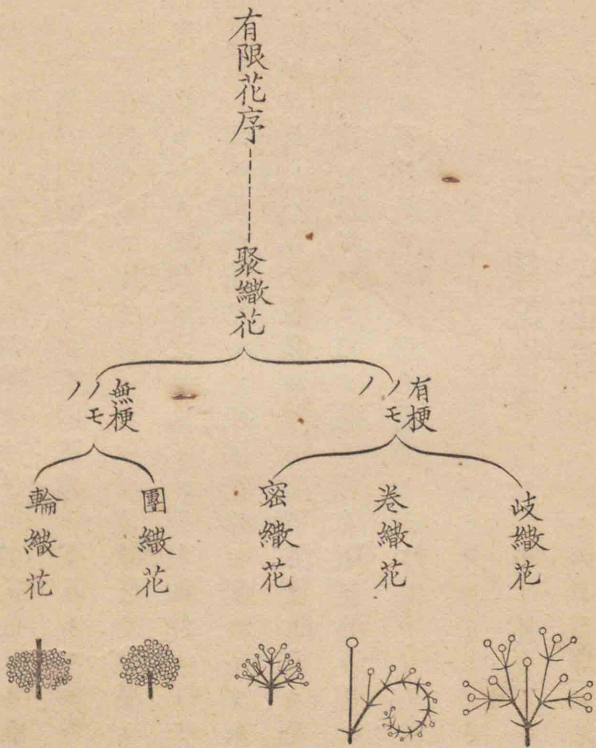 有限花序
聚繖花
有梗ノモノ
無梗ノモノ
岐繖花
卷繖花
密繖花
團繖花
輪繖花